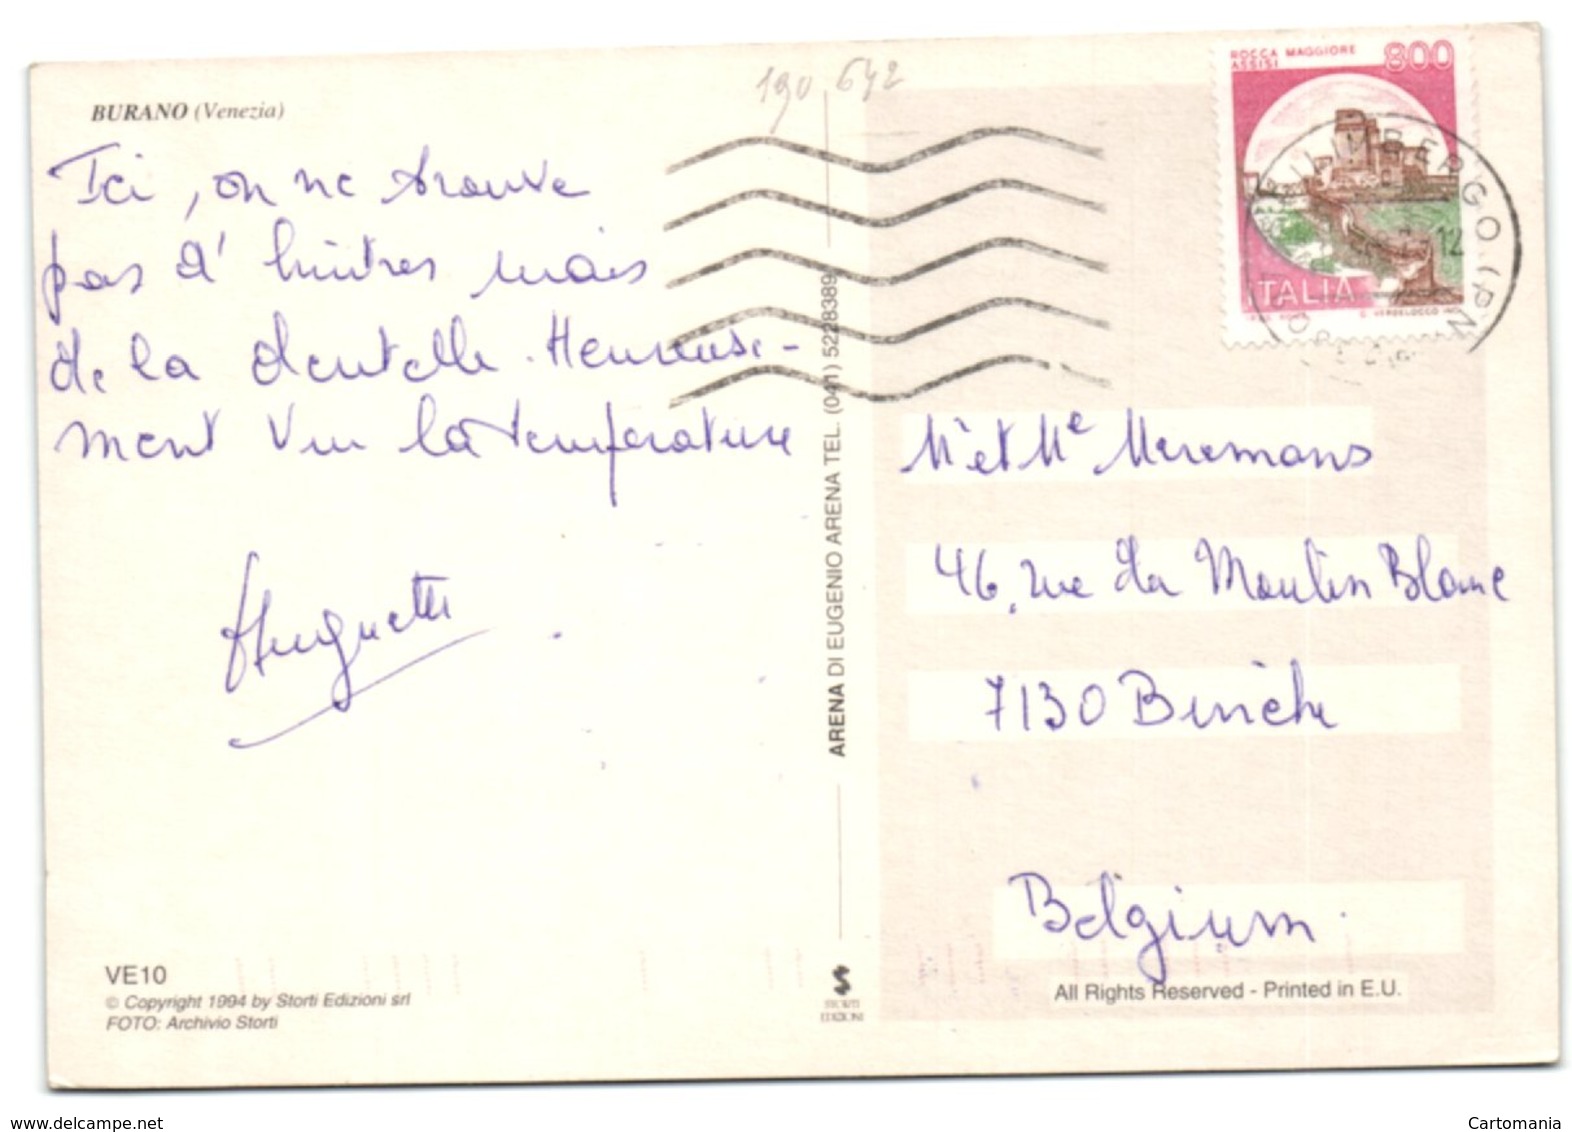 BURANO (Venezia)
190 642
Ici, on ne trouve
pas d'huitres mais
de la dentelle. Heureuse-
ment vu la température
Huguette
VE10
© Copyright 1994 by Storti Edizioni srl
FOTO: Archivio Storti
ARENA DI EUGENIO ARENA TEL. (041) 5228389
STORTI
EDIZIONI
ROCCA MAGGIORE
ASSISI
800
ITALIA
SPILIMBERGO (PN)
12
Mr et Me Meremans
46, rue du Moulin Blanc
7130 Binche
Belgium
All Rights Reserved - Printed in E.U.
www.delcampe.net
Cartomania